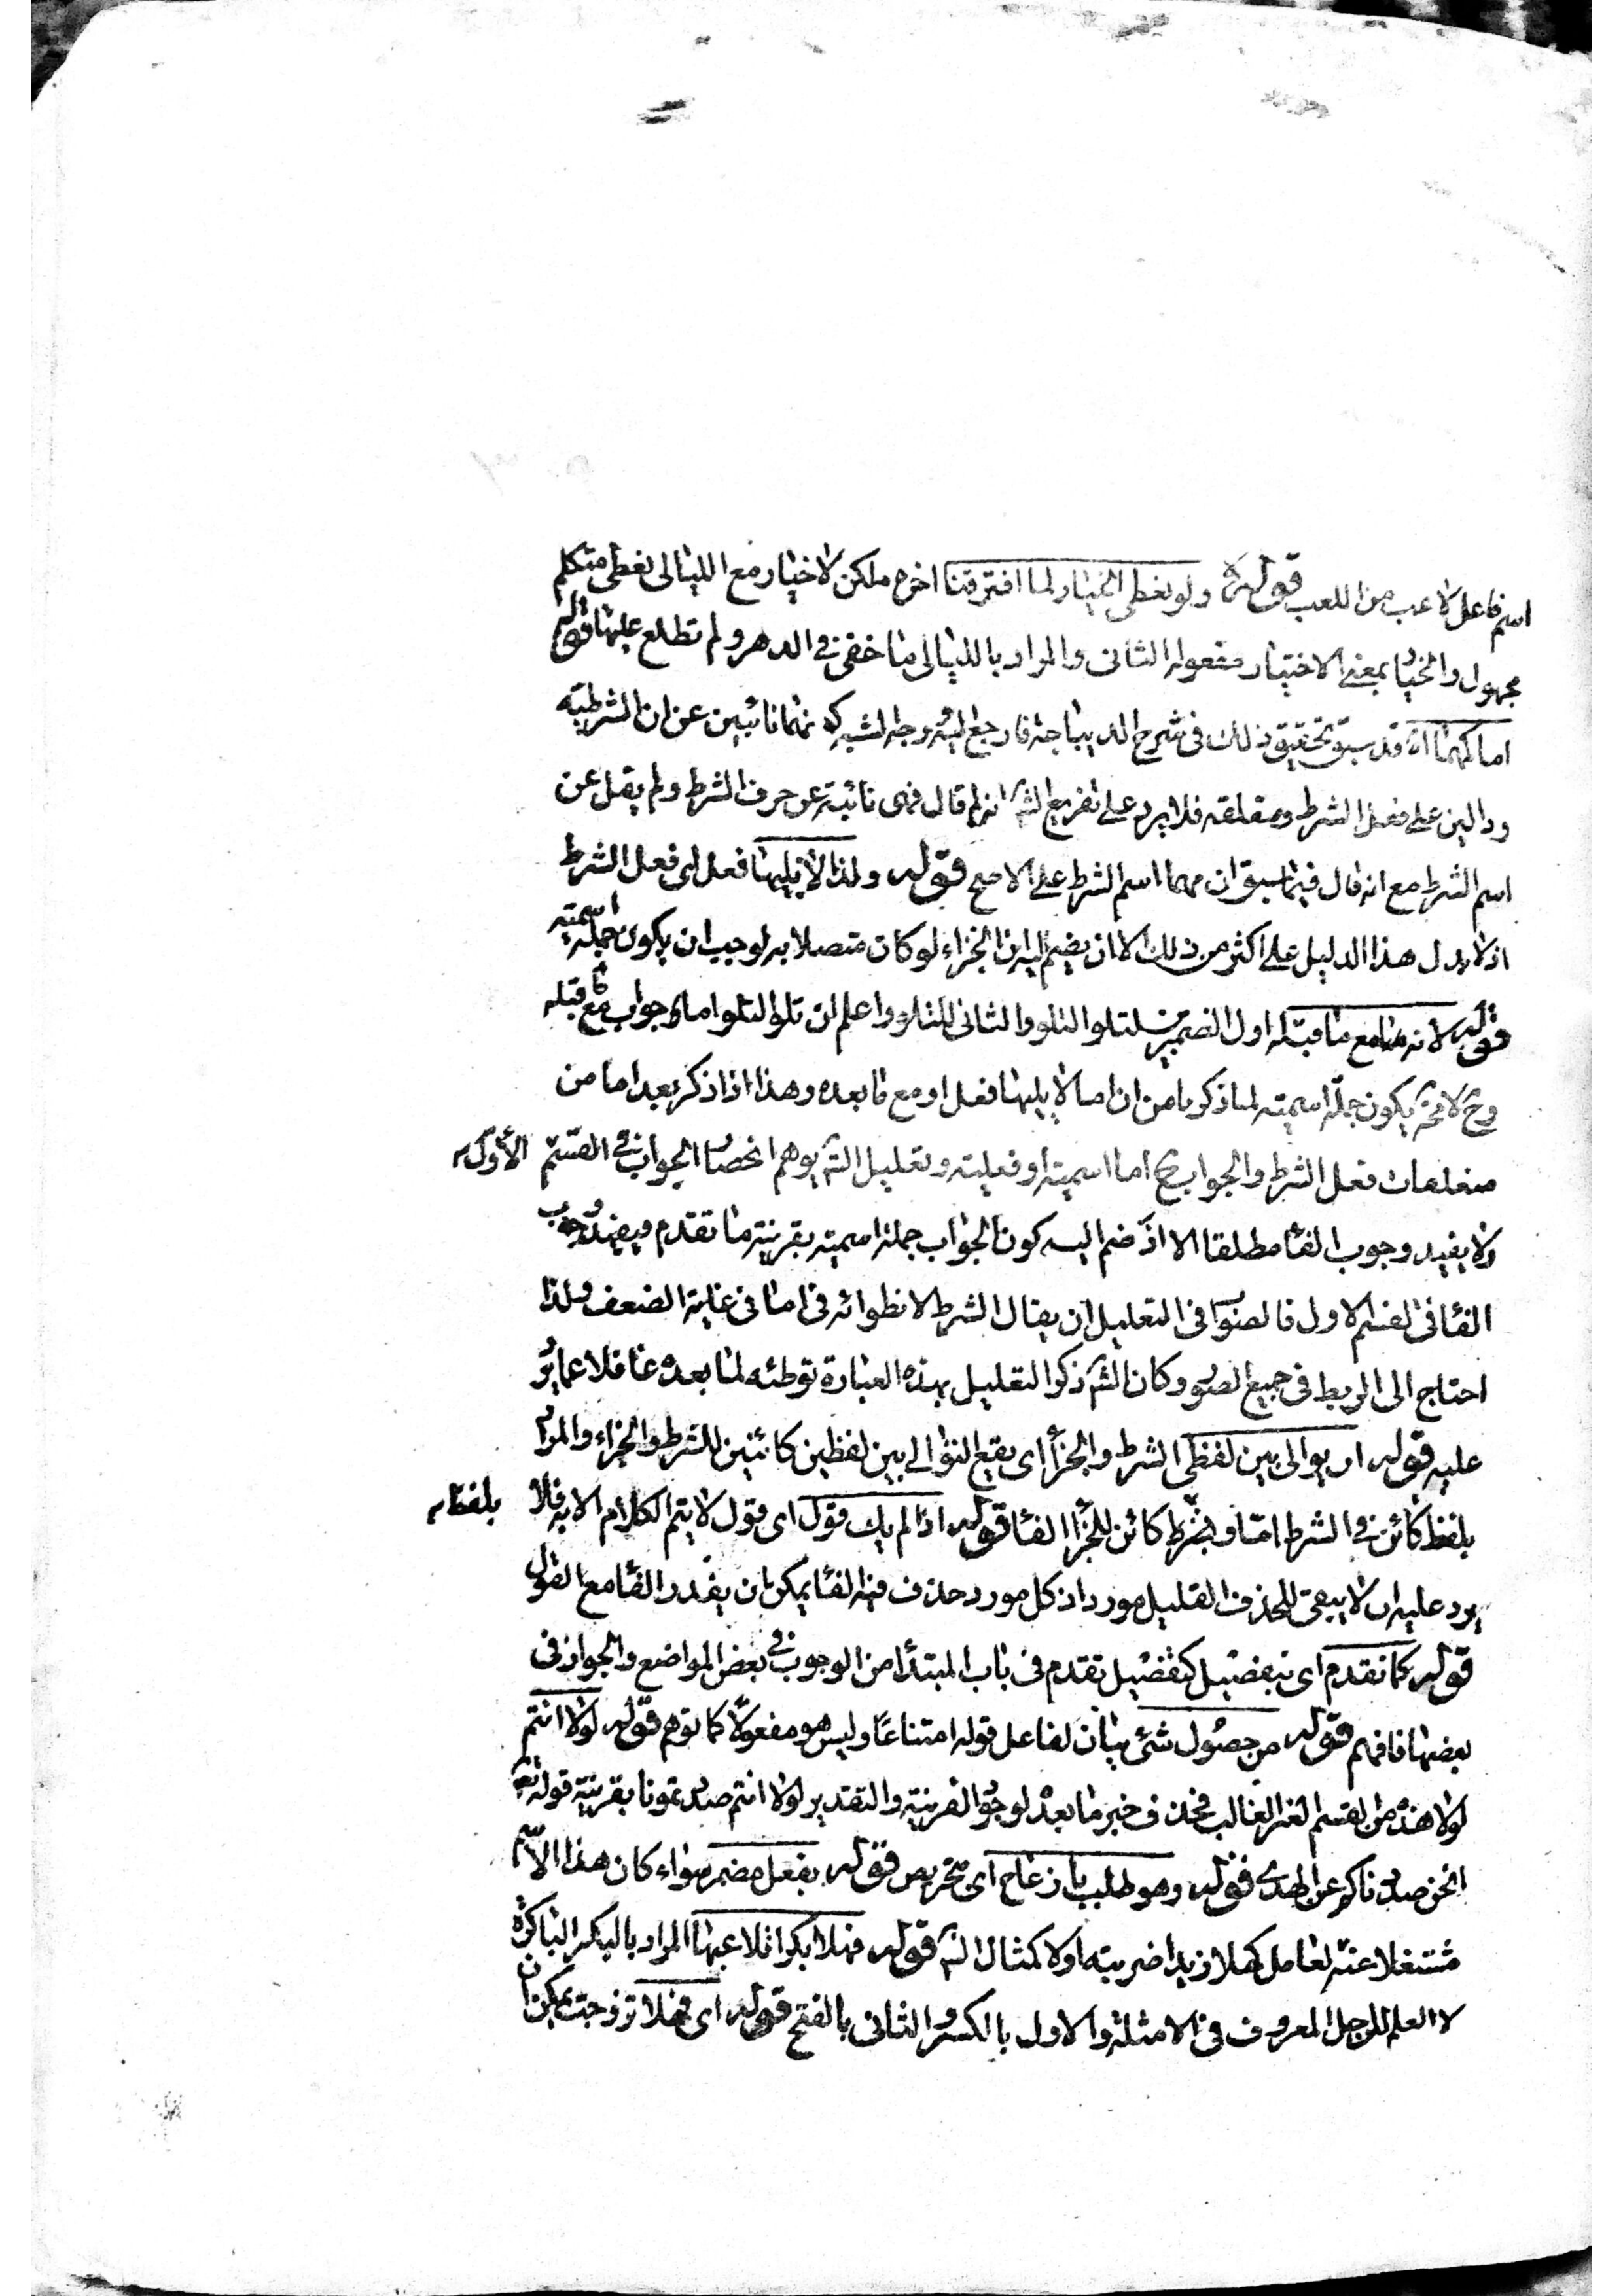 اسم فاعل لاعب من اللعب قوله ولو نعطى الخيار لما افترقنا اخره ولكن لا خيار مع الليالى نعطى متكلم
مجهول والخيار بمعنى الاختيار مفعوله الثانى والمراد بالليالى ما خفى فى الدهر ولم تطلع عليها قوله
اما كمهما اه قد سبق تحقيق ذلك فى شرح الديباجة فارجع اليه وجه الشبه كونهما نائبين عن ان الشرطية
ودالين على فعل الشرط ومتعلقه فلا يرد على تفريع الش انه لم قال فهى نائبة عن حرف الشرط ولم يقل عن
اسم الشرط مع انه قال فيما سبق ان مهما اسم الشرط على الاصح قوله ولذا لا يليها فعل اى فعل الشرط
اذ لا يدل هذا الدليل على اكثر من ذلك الا ان يضم اليه ان الجزاء لو كان متصلا به لوجب ان يكون جملة اسمية
قوله لانه مع ما قبله اول الضميرين لتلو التلو والثانى للتلو واعلم ان تلو التلو اما جواب مع ما قبله
وح لا محة يكون جملة اسمية لما ذكر ما من ان اما لا يليها فعل او مع ما بعده وهذا اذا ذكر بعد اما من
متعلقات فعل الشرط والجواب ح اما اسمية او فعلية وتعليل الش يوهم انحصار الجواب فى القسم الأول
ولا يفيد وجوب الفاء مطلقا الا اذا ضم اليه كون الجواب جملة اسمية بقرينة ما تقدم ويفيد وجوب
الفاء فى القسم الاول فالصواب فى التعليل ان يقال الشرط لانطوائه فى اما فى غاية الضعف ولذا
احتاج الى الربط فى جميع الصور وكان الش ذكر التعليل بهذه العبارة توطئه لما بعده غافلا عما يرد
عليه قوله ان يوالى بين لفظى الشرط والجزاء اى يقع التوالى بين لفظين كائنين للشرط والجزاء والمراد
بلفظ كائن فى الشرط اما و بلفظ كائن للجزاء الفاء قوله اذا لم يك قول اى قول لا يتم الكلام الا به فلا
يرد عليه ان لا يبقى للحذف القليل مورد اذ كل مورد حذف فيه الفاء يمكن ان يقدر الفاء مع القول
قوله كما تقدم اى بتفصيل كتفصيل تقدم فى باب المبتدأ من الوجوب فى بعض المواضع والجواز فى
بعضها فافهم قوله من حصول شئ بيان لفاعل قوله امتناعا وليس هو مفعولا كما توهم قوله لولا انتم
لولا هذه من القسم الغير الغالب فحذف خبر ما بعده لوجود القرينة والتقدير لولا انتم صددتمونا بقرينة قوله تع
انحن صددناكم عن الهدى قوله وهو طلب بازعاج اى تحريص قوله بفعل مضمر سواء كان هذا الاسم
مشتغلا عنه لعامل كهلا زيدا ضربته او لا كمثال الش قوله فهلا بكرا تلاعبها المراد بالبكر الباكرة
لا العلم للرجل المعروف فى الامثلة والاول بالكسر والثانى بالفتح قوله اى فهلا تزوجت يمكن ان